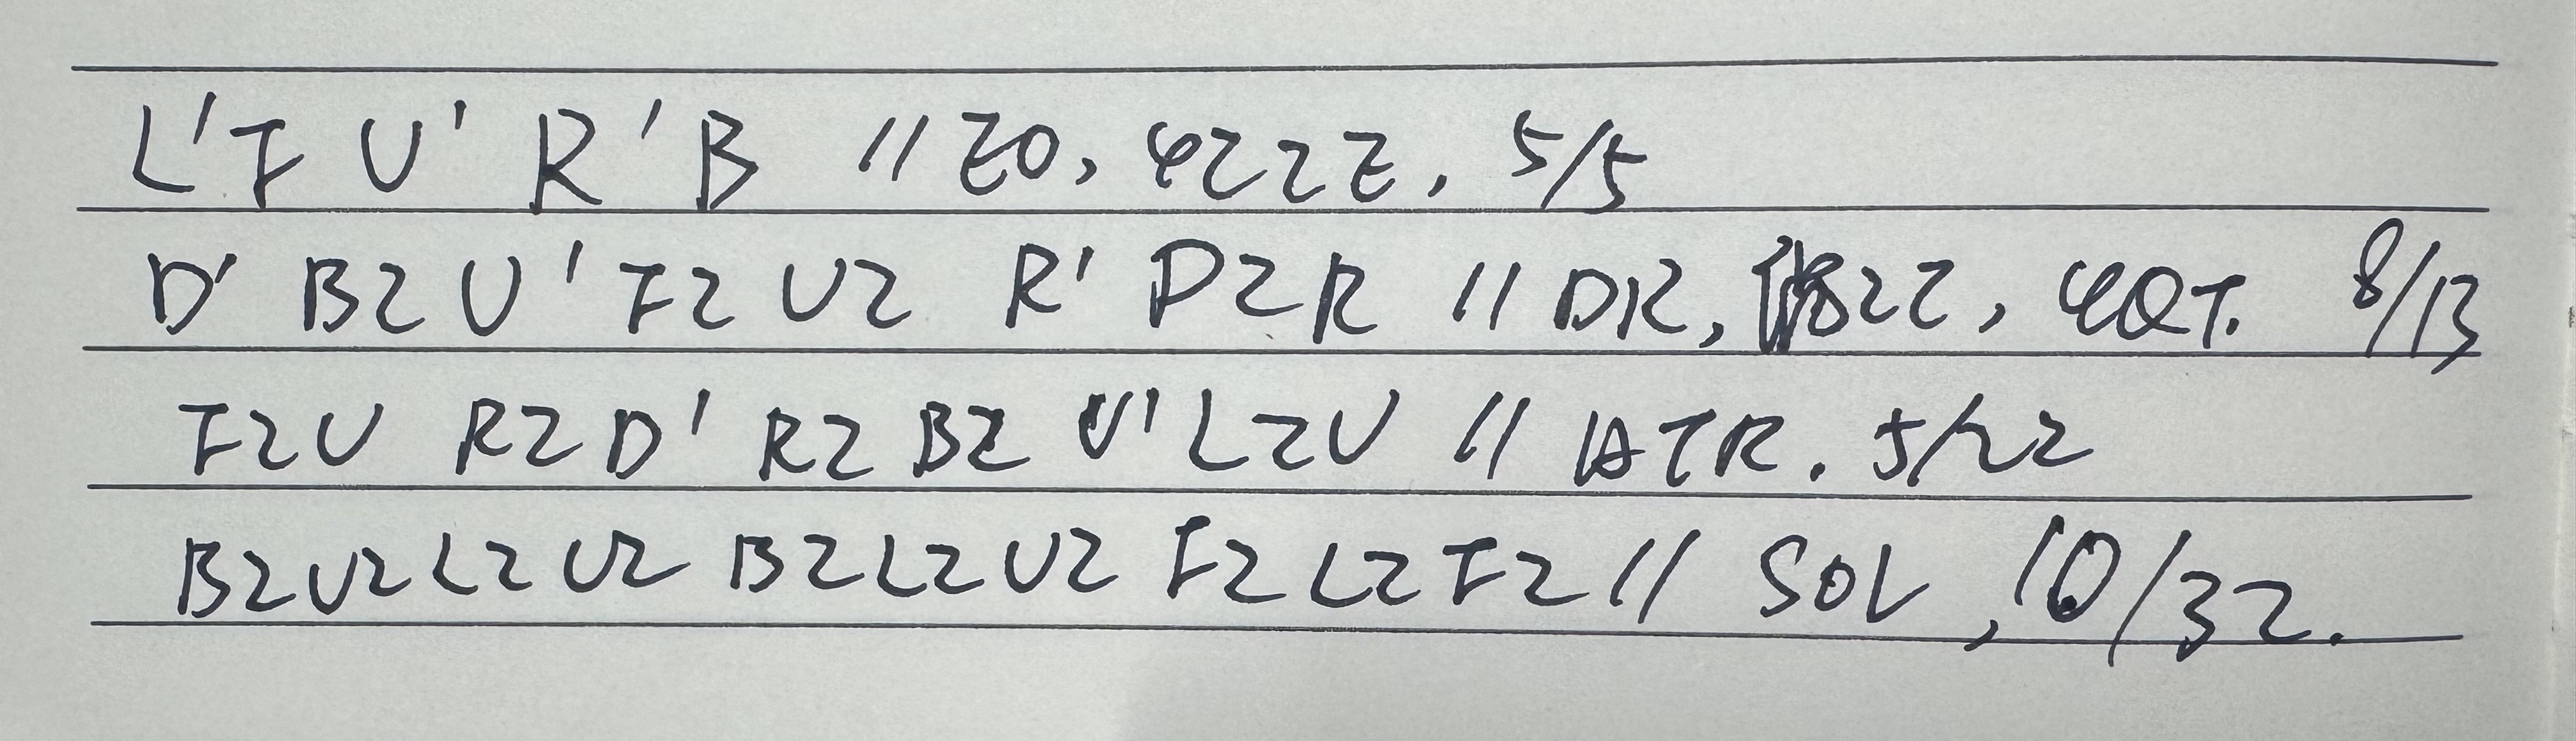 L' F U' R' B // EO, 4e2E. 5/5
D' B2 U' F2 U2 R' D2 R // DR, 8e2E, 4QT. 8/13
F2 U R2 D' R2 B2 U' L2 U // HTR. 5/22
B2 U2 L2 U2 B2 L2 U2 F2 L2 F2 // SOL, 10/32.